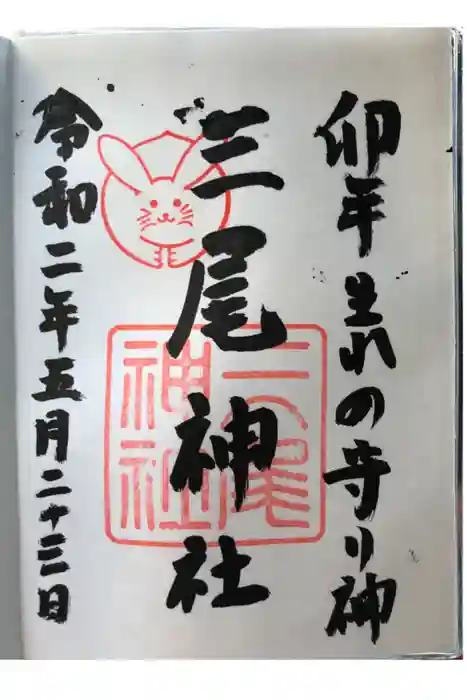 卯年生れの守り神
三尾神社
三尾神社
令和二年五月二十三日